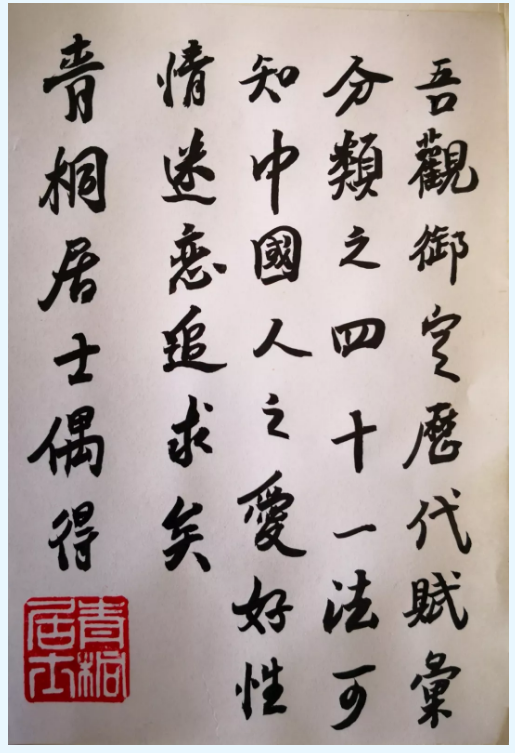 吾觀御定歷代賦彙
分類之四十一法可
知中國人之愛好性
情迷戀追求矣
青桐居士偶得
青桐居士